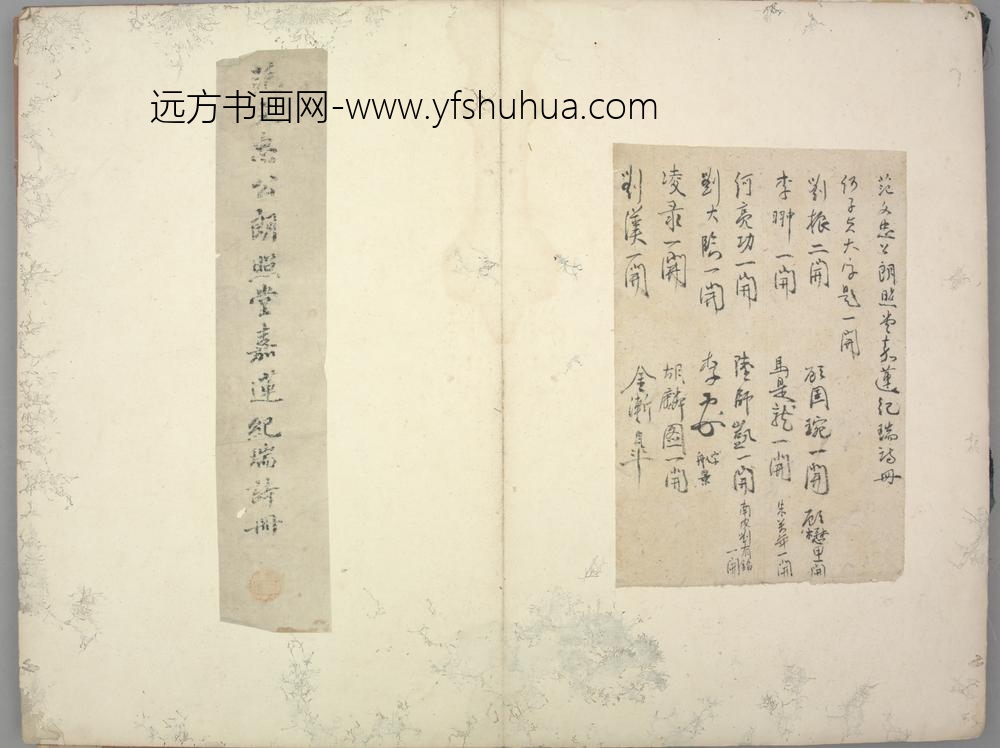 远方书画网-www.yfshuhua.com
范文忠公朗照堂嘉蓮紀瑞詩冊
何子貞大字題一開
劉振二開 顧國琬一開 顧懋里一開
李翀一開 馬是龍一開 朱芳年一開
何亮功一開 陸師凱一開 南皮劉有銘一開
劉大臨一開 李
凌录一開 胡麟圖一開
劉漢一開 金漸皐
范文忠公朗照堂嘉蓮紀瑞詩冊